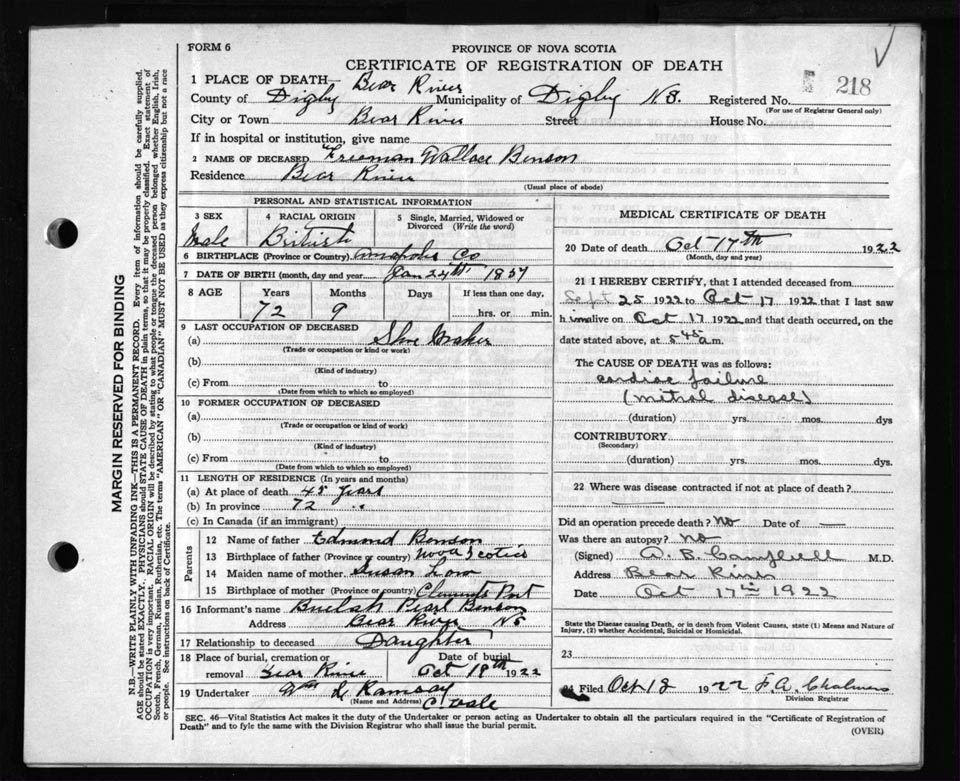 FORM 6
PROVINCE OF NOVA SCOTIA
CERTIFICATE OF REGISTRATION OF DEATH
218
1 PLACE OF DEATH— Bear River
County of Digby Municipality of Digby N.S. Registered No.
(For use of Registrar General only)
City or Town Bear River Street House No.
If in hospital or institution, give name
2 NAME OF DECEASED Freeman Wallace Benson
Residence Bear River
(Usual place of abode)
PERSONAL AND STATISTICAL INFORMATION
3 SEX 4 RACIAL ORIGIN 5 Single, Married, Widowed or Divorced (Write the word)
Male British
6 BIRTHPLACE (Province or Country) Annapolis Co
7 DATE OF BIRTH (month, day and year) Jan 24th
8 AGE Years Months Days If less than one day,
72 9 hrs. or min.
9 LAST OCCUPATION OF DECEASED
(a) Shoe Maker
(Trade or occupation or kind or work)
(b)
(Kind of industry)
(c) From to
(Date from which to which so employed)
10 FORMER OCCUPATION OF DECEASED
(a)
(Trade or occupation or kind of work)
(b)
(Kind of industry)
(c) From to
(Date from which to which so employed)
11 LENGTH OF RESIDENCE (In years and months)
(a) At place of death 45 years
(b) In province 72 "
(c) In Canada (if an immigrant)
Parents
12 Name of father Edmond Benson
13 Birthplace of father (Province or country) Nova Scotia
14 Maiden name of mother Susan
15 Birthplace of mother (Province or country) Clements Port
16 Informant's name Beulah Pearl Benson
Address Bear River NS
17 Relationship to deceased Daughter
18 Place of burial, cremation or removal Bear River Date of burial Oct 19th 1922
19 Undertaker Wm Ramsay
(Name and Address) C. Vale
MEDICAL CERTIFICATE OF DEATH
20 Date of death Oct 17th 1922
(Month, day and year)
21 I HEREBY CERTIFY, that I attended deceased from
Sept 25 1922 to Oct 17 1922 that I last saw
h im alive on Oct 17 1922 and that death occurred, on the
date stated above, at 5 45 a.m.
The CAUSE OF DEATH was as follows:
cardiac failure
(mitral disease)
(duration) yrs. mos. dys
CONTRIBUTORY
(Secondary)
(duration) yrs. mos. dys.
22 Where was disease contracted if not at place of death?
Did an operation precede death? No Date of —
Was there an autopsy? No
(Signed) A. B. Campbell M.D.
Address Bear River
Date Oct 17th 1922
State the Disease causing Death, or in death from Violent Causes, state (1) Means and Nature of
Injury, (2) whether Accidental, Suicidal or Homicidal.
23
24 Filed Oct 18 1922 F. A. Chalmers
Division Registrar
SEC. 46—Vital Statistics Act makes it the duty of the Undertaker or person acting as Undertaker to obtain all the particulars required in the "Certificate of Registration of
Death" and to fyle the same with the Division Registrar who shall issue the burial permit.
(OVER)
MARGIN RESERVED FOR BINDING
N.B.—WRITE PLAINLY WITH UNFADING INK—THIS IS A PERMANENT RECORD. Every item of information should be carefully supplied.
AGE should be stated EXACTLY. PHYSICIANS should STATE CAUSE OF DEATH in plain terms, so that it may be properly classified. Exact statement of
OCCUPATION is very important. RACIAL ORIGIN will be described by stating to what people or tongue the deceased person belonged whether English, Irish,
Scotch, French, German, Russian, Ruthenian, etc. The terms "AMERICAN" OR "CANADIAN" MUST NOT BE USED as they express citizenship but not a race
or people. See instructions on back of Certificate.